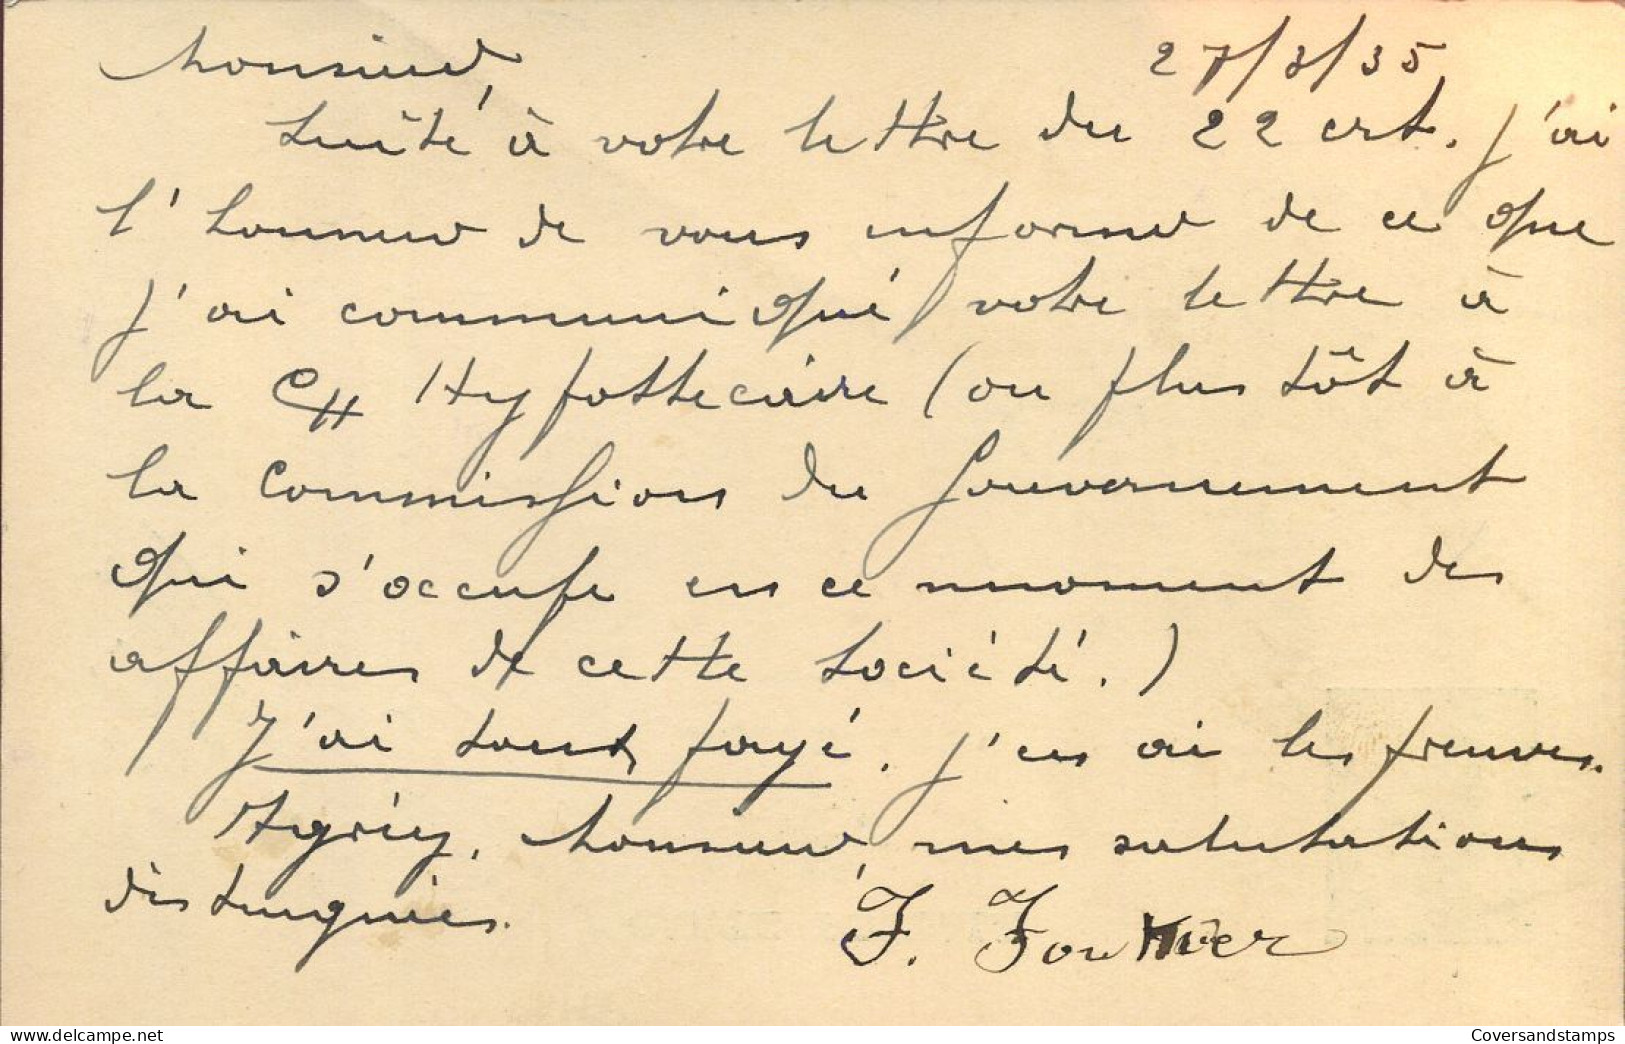 Monsieur, 27/3/35,
Suite à votre lettre du 22 crt. j'ai
l'honneur de vous informer de ce que
j'ai communiqué votre lettre à
la Cie Hypottecaire (ou plus tôt à
la Commission du Gouvernement
qui s'occupe en ce moment des
affaires de cette société.)
J'ai tout payé. j'en ai les preuves.
Agréez, Monsieur, mes salutations
distinguées.
Coversandstamps.be
Coversandstamps